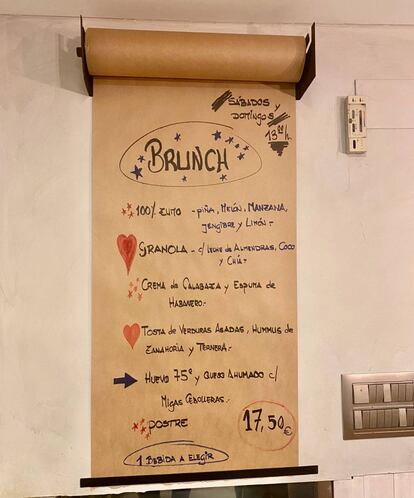 SÁBADOS y
DOMINGOS
13:00 h.
BRUNCH
100% ZUMO - PIÑA, MELÓN, MANZANA,
JENGIBRE y LIMÓN.-
GRANOLA - c/ LECHE de ALMENDRAS, COCO
y CHÍA.-
CREMA de CALABAZA y ESPUMA de
HABANERO.-
TOSTA de VERDURAS ASADAS, HUMMUS de
ZANAHORIA y TERNERA.-
HUEVO 75º y QUESO AHUMADO c/
MIGAS CEBOLLERAS.-
POSTRE
17,50€
1 BEBIDA A ELEGIR